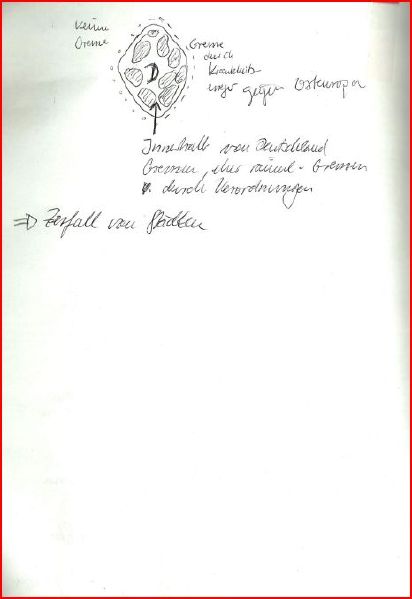 Keine
Grenze
Grenze
durch
Krankheits-
gegen Osteuropa
D
Innerhalb von Deutschland
Grenzen, eher räuml. Grenzen
durch Verordnungen
⇒ Zerfall von Städten